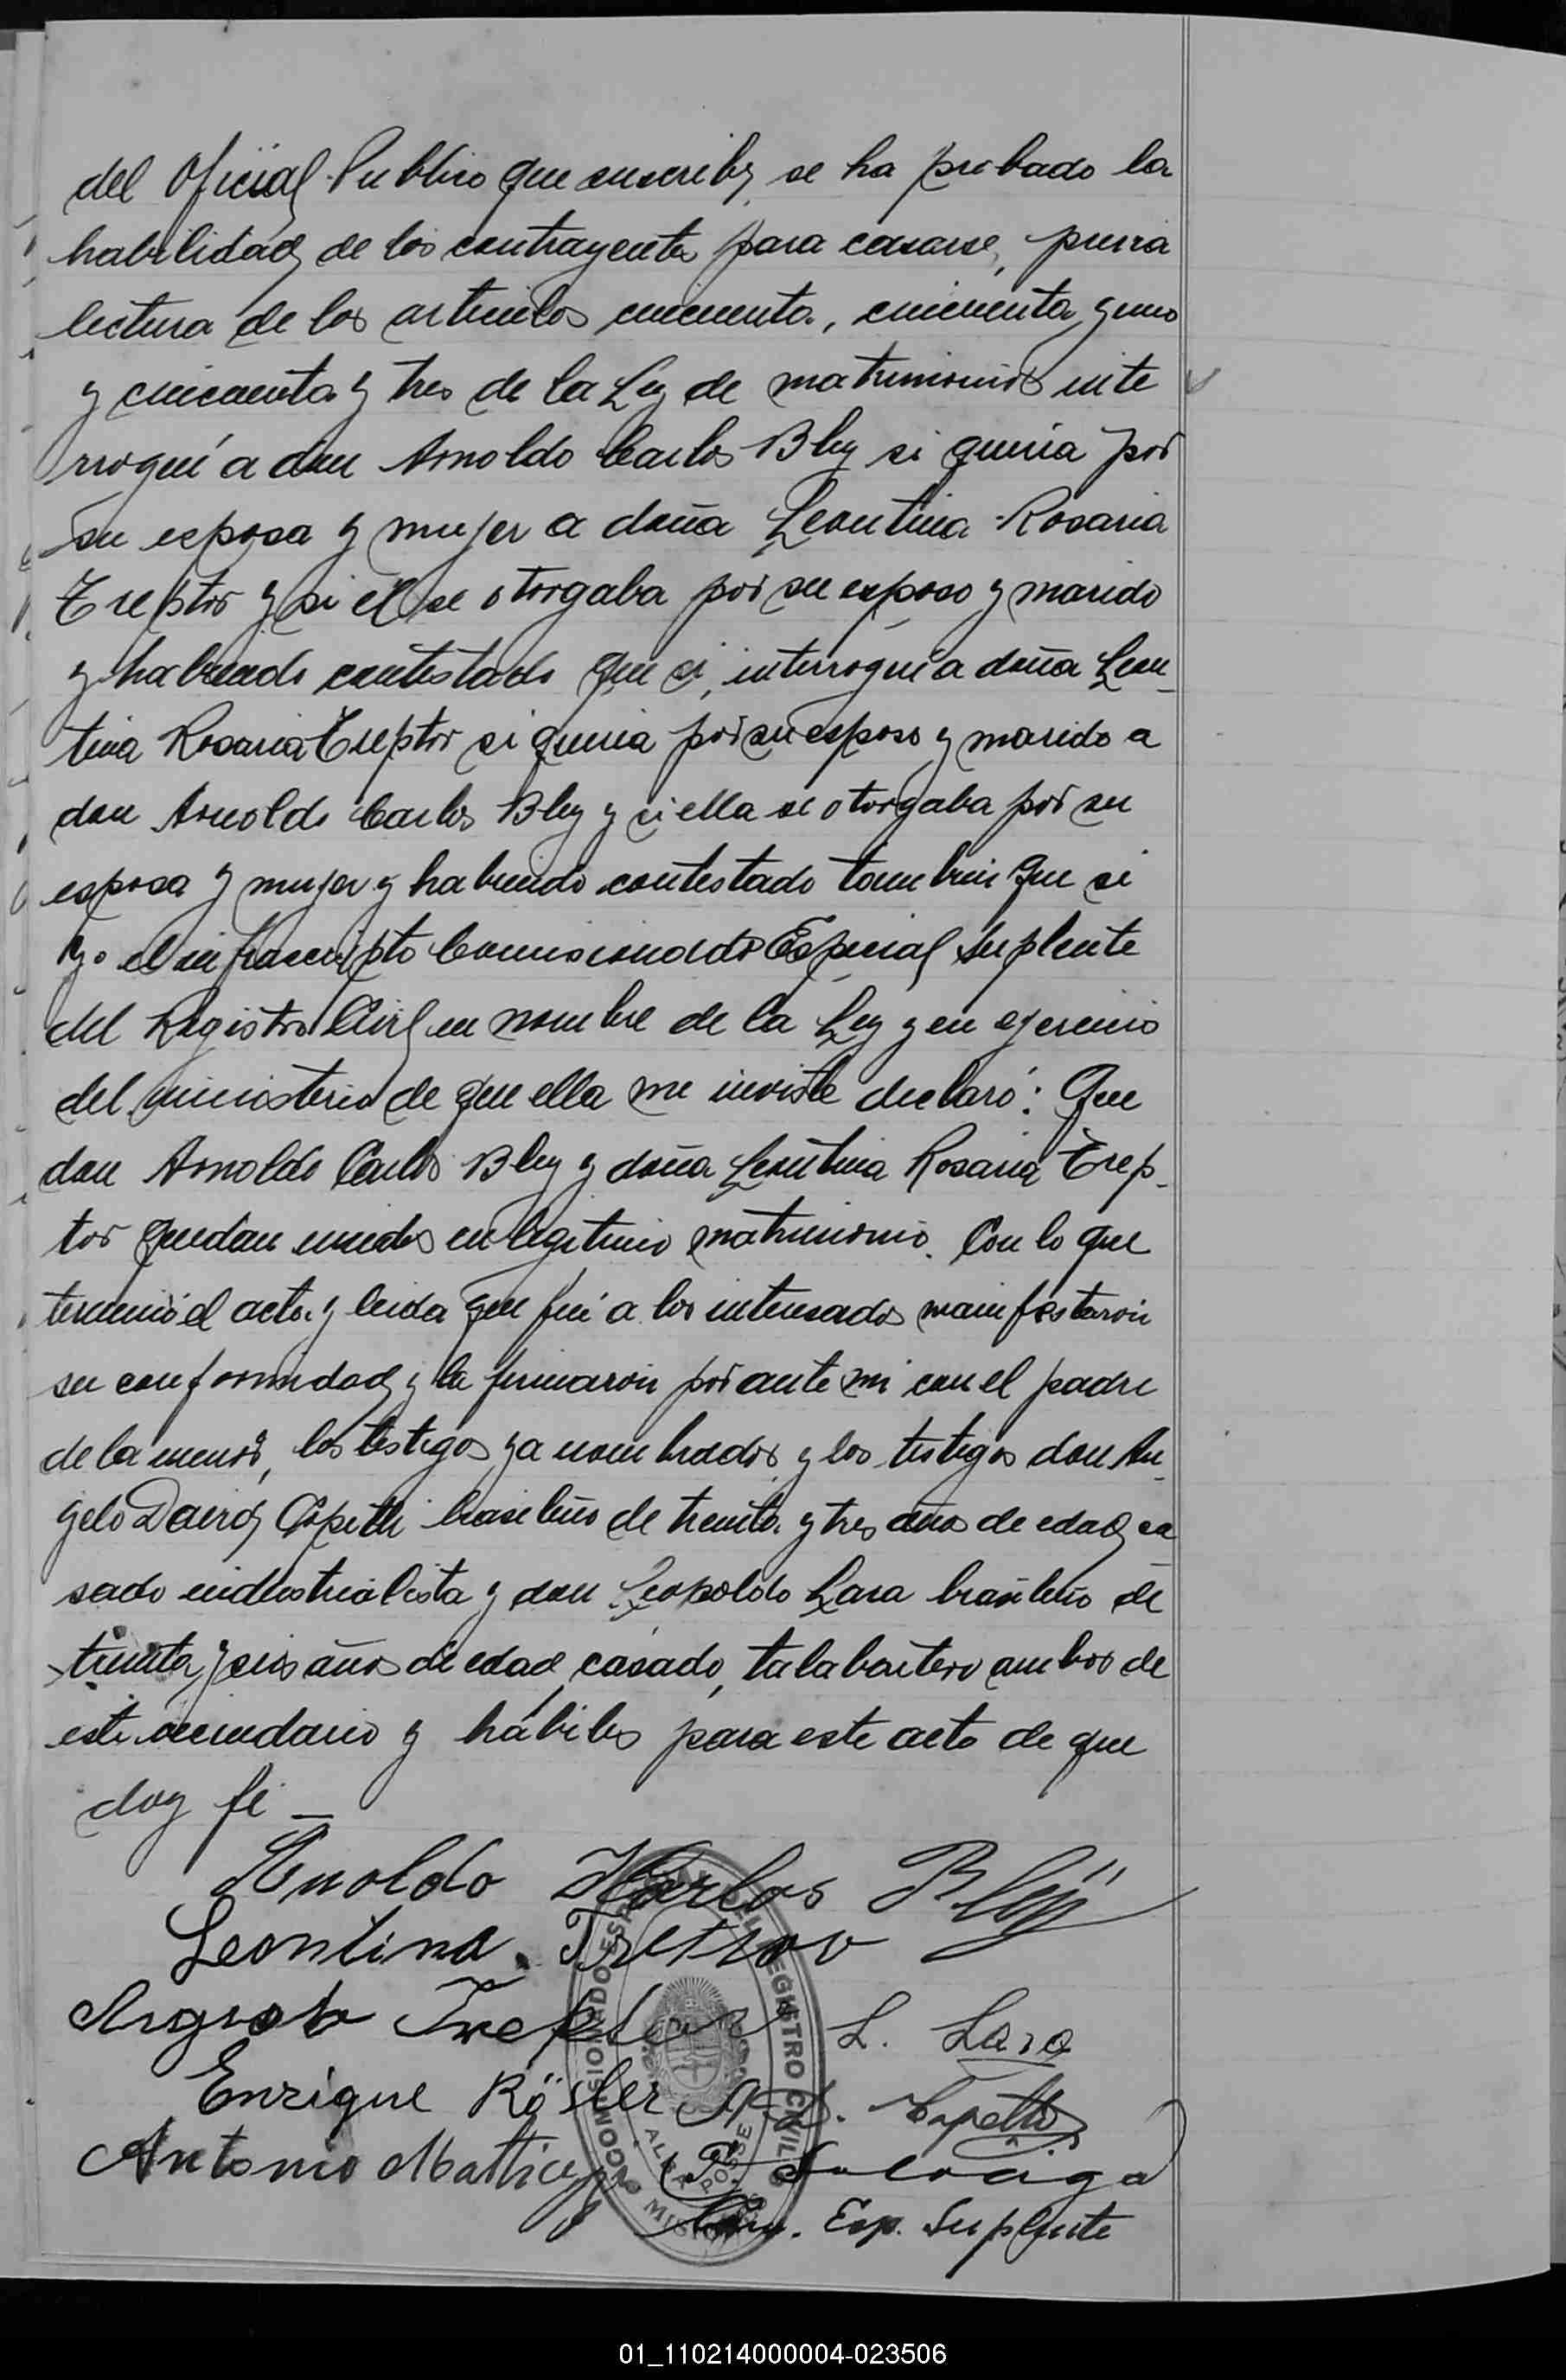 del Oficial Publico que suscribe, se ha probado la
habilidad de los contrayentes para casarse, previa
lectura de los articulos cincuenta, cincuenta y uno
y cincuenta y tres de la Ley de matrimonios inte
rrogué a don Arnoldo Carlos Bley si queria por
su esposa y mujer a doña Leontina Rosaria
Treptor y si él se otorgaba por su esposo y marido
y habiendo contestado que si, interrogué a doña Leon-
tina Rosaria Treptor si queria por su esposo y marido a
don Arnoldo Carlos Bley y si ella se otorgaba por su
esposa y mujer y habiendo contestado tambien que si
Yo el infrascripto Comisionado Especial Suplente
del Registro Civil en nombre de la Ley y en ejercicio
del ministerio de que ella me inviste declaró: Que
don Arnoldo Carlos Bley y doña Leontina Rosaria Trep-
tor quedan unidos en legitimo matrimonio. Con lo que
terminó el acta y leida que fué a los interesados manifestaron
su conformidad y la firmaron por ante mi con el padre
de la menor, los testigos ya nombrados y los testigos don An-
gelo David brasileño de treinta y tres años de edad ca
sado industrialista y don Leopoldo Lara brasileño de
treinta y seis años de edad, casado, talabartero ambos de
este vecindario y hábiles para este acto de que
doy fe —
Arnoldo Karlos Bley
Leontina Treptow
August Treptow L. Lara
Enrique Rösler A. D.
Antonio
Com. Esp. Suplente
COMISIONADO ESPECIAL DEL REGISTRO CIVIL
ALBA POSSE
MISIONES
01_110214000004-023506